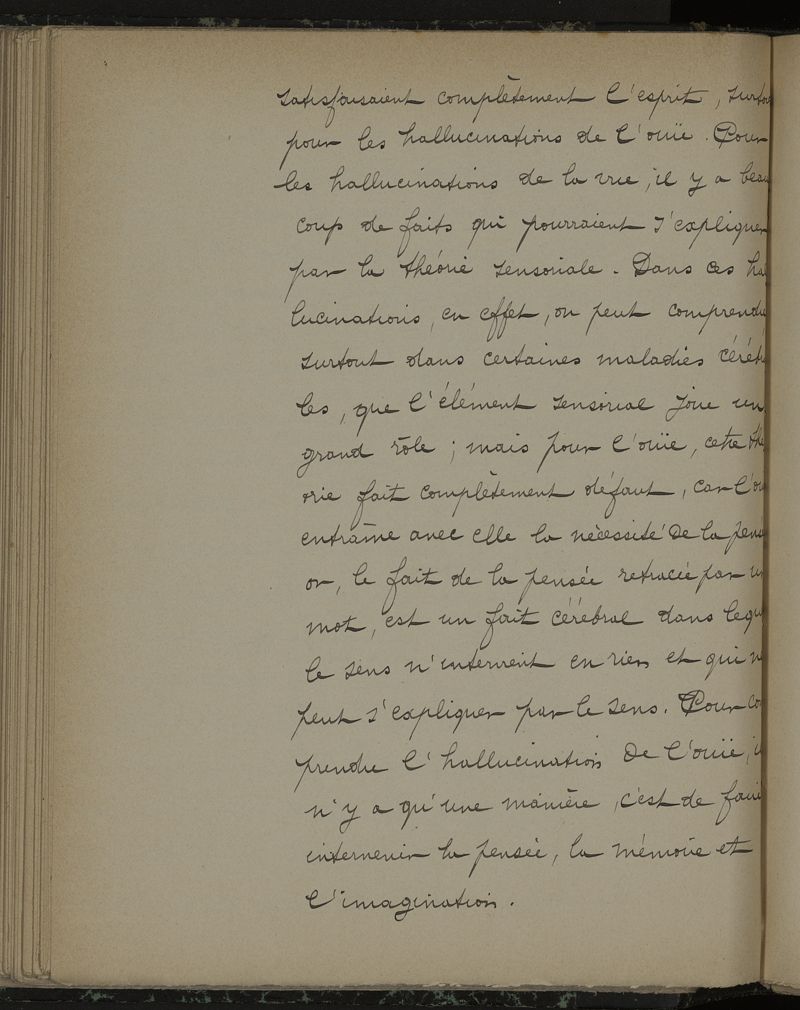 satisfaisaient complètement l'esprit, surtou
pour les hallucinations de l'ouïe. Pour
les hallucinations de la vue, il y a beau
coup de faits qui pourraient s'expliquer
par la théorie sensoriale. Dans ces ha
lucinations, en effet, on peut comprendre
surtout dans certaines maladies céréb
les, que l'élément sensorial joue un
grand rôle ; mais pour l'ouïe, cette thé
orie fait complètement défaut, car l'ou
entraîne avec elle la nécessité de la pens
or, le fait de la pensée retracée par un
mot, est un fait cérébral dans lequ
le sens n'intervient en rien et qui n
peut s'expliquer par le sens. Pour co
prendre l'hallucination de l'ouïe, i
n'y a qu'une manière, c'est de fair
intervenir la pensée, la mémoire et
l'imagination.